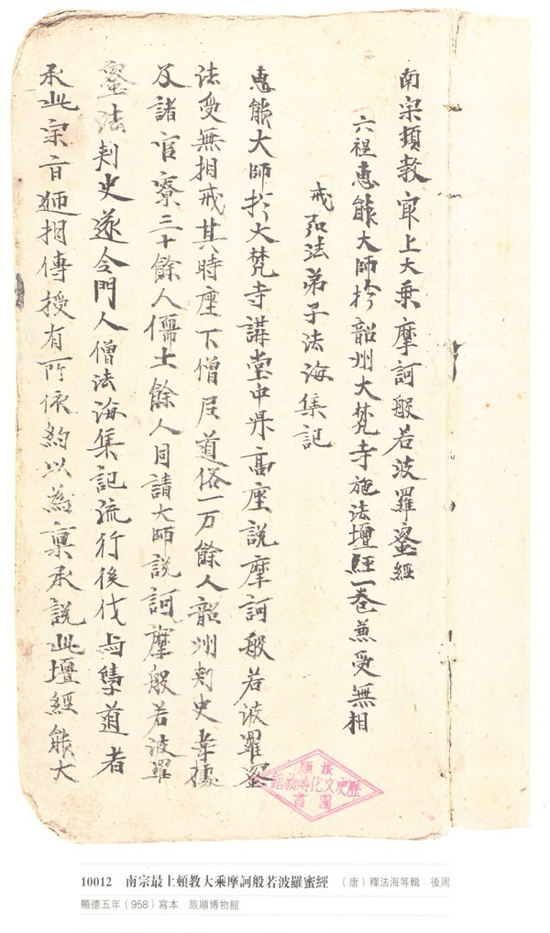 南宗頓教㝡上大乘摩訶般若波羅蜜經
六祖惠能大師於韶州大梵寺施法壇經一卷兼受無相
戒弘法弟子法海集記
惠能大師於大梵寺講堂中昇高座說摩訶般若波羅蜜
法受無相戒其時座下僧尼道俗一万餘人韶州刾史韋㯫
及諸官寮三十餘人儒士餘人同請大師說訶摩般若波羅
蜜法刾史遂令門人僧法海集記流行後伐与學道者
承此宗旨逓相傳授有所依約以為稟承說此壇經能大
旅順
歷史文化博物館
圖書
10012 南宗最上頓教大乘摩訶般若波羅蜜經 （唐）釋法海等輯 後周
顯德五年（958）寫本 旅順博物館